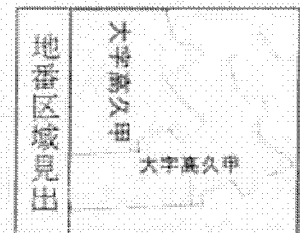 地番区域見出
大字高久甲
大字高久甲